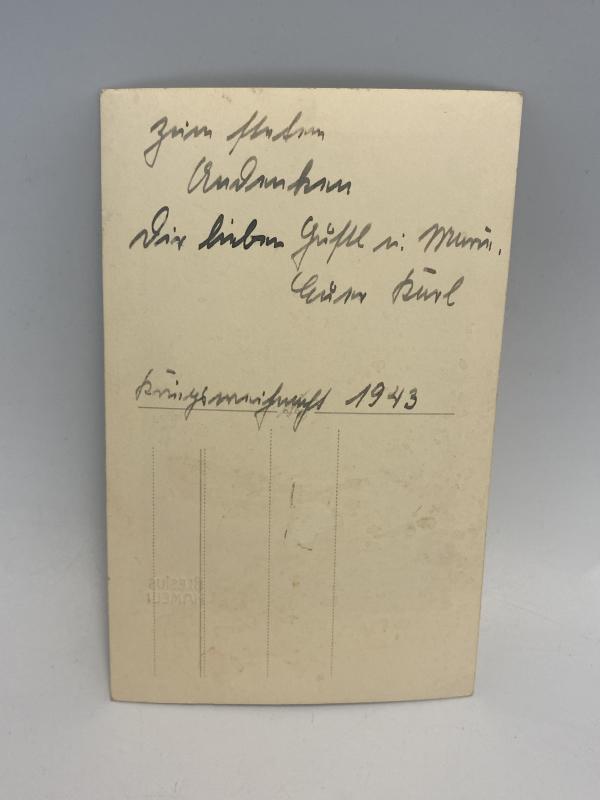 Zum steten
Andenken
Dir lieben Gustl u. Marie.
Euer Karl
Kriegsweihnacht 1943